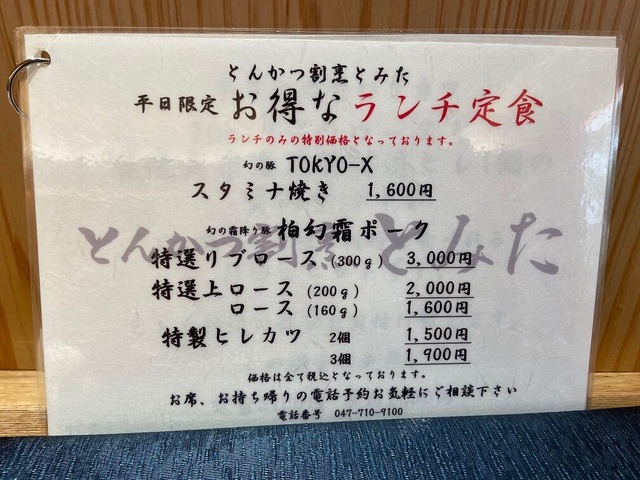 とんかつ割烹とみた
平日限定 お得なランチ定食
ランチのみの特別価格となっております。
幻の豚 TOKYO-X
スタミナ焼き 1,600円
幻の霜降り豚 柏幻霜ポーク
とんかつ割烹とみた
特選リブロース (300g) 3,000円
特選上ロース (200g) 2,000円
ロース (160g) 1,600円
特製ヒレカツ 2個 1,500円
3個 1,900円
価格は全て税込となっております。
お席、お持ち帰りの電話予約お気軽にご相談下さい
電話番号 047-710-9100